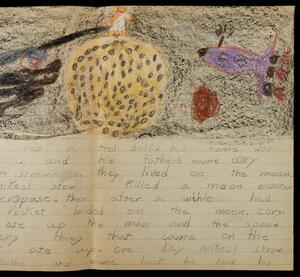 was a trol doll. his name was
and his fathers name cory
they lived on the moon.
mikel straw killed a moon monster
erspase. then after a while had
rocket landed on the moon. cory
ate up the man and the spase
ery thing that came on the
ate up. one day mikel straw
and came back he told his